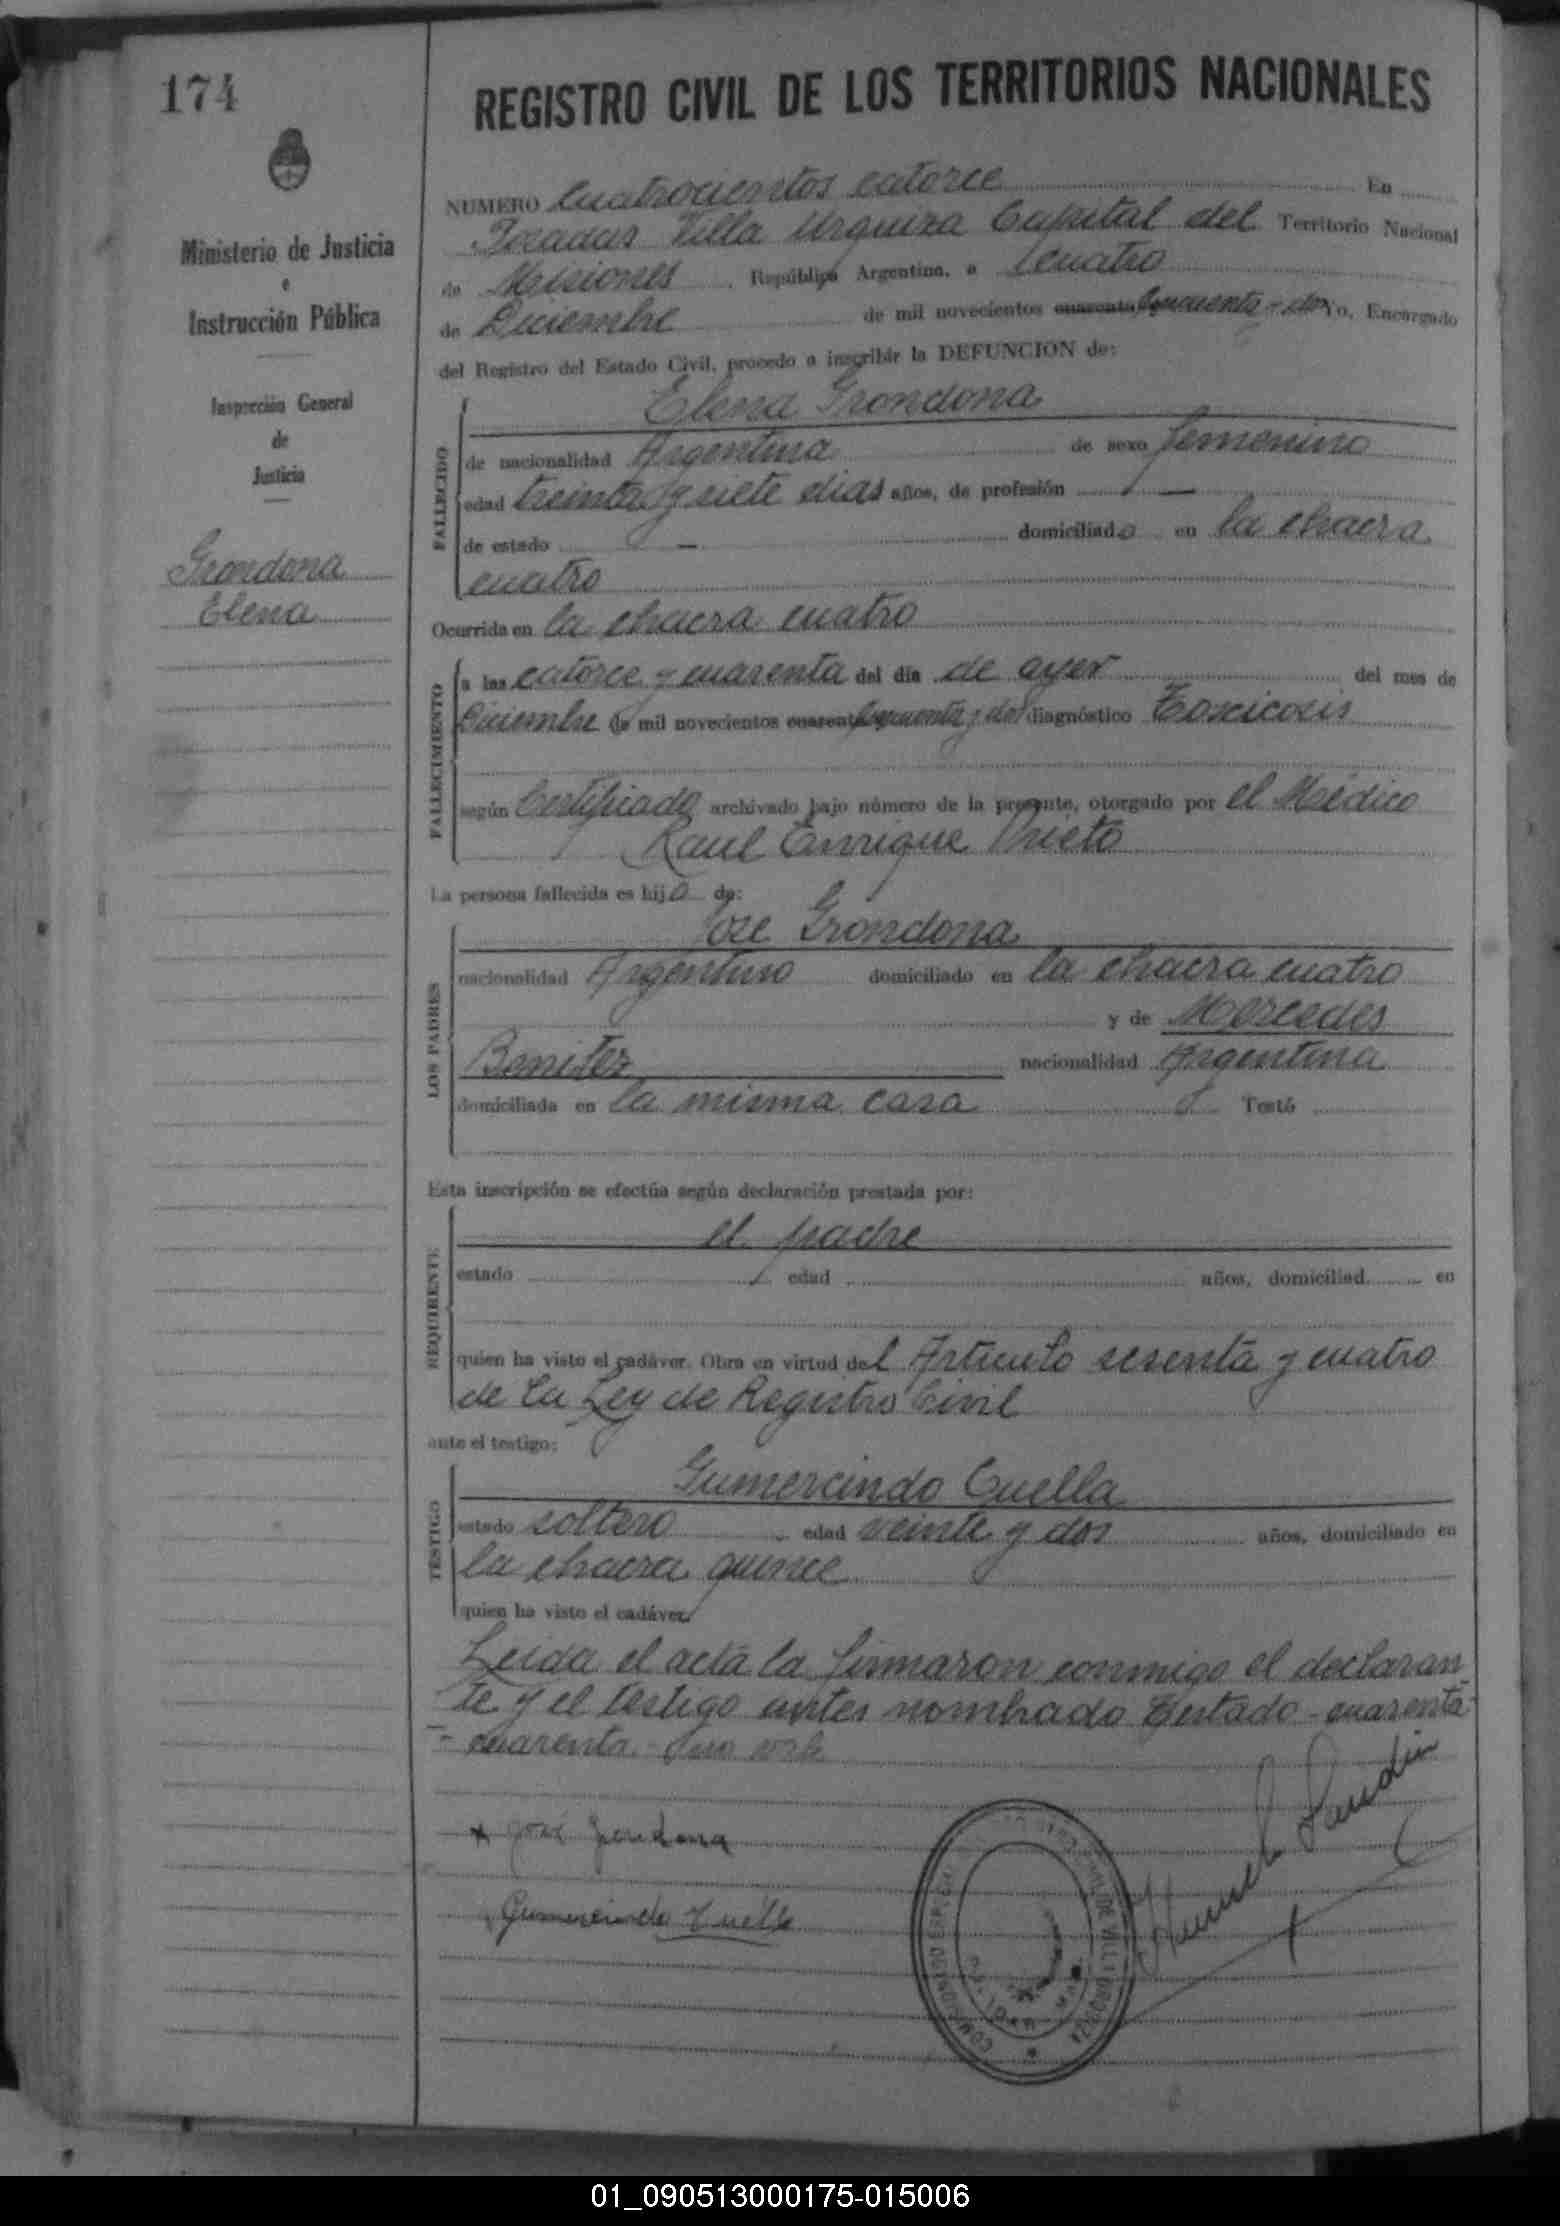 174
REGISTRO CIVIL DE LOS TERRITORIOS NACIONALES
Ministerio de Justicia
e
Instrucción Pública
Inspección General
de
Justicia
Grondona
Elena
NUMERO Cuatrocientos catorce En
Posadas Villa Urquiza Capital del Territorio Nacional
de Misiones, República Argentina, a cuatro
de Diciembre de mil novecientos cuarenta cincuenta y dos Yo, Encargado
del Registro del Estado Civil, procedo a inscribir la DEFUNCION de:
FALLECIDO
Elena Grondona
de nacionalidad Argentina de sexo femenino
edad treinta y siete dias años, de profesión —
de estado — domiciliada en la chacra
cuatro
Ocurrida en la chacra cuatro
FALLECIMIENTO
a las catorce y cuarenta del día de ayer del mes de
Diciembre de mil novecientos cuarenta cincuenta y dos diagnóstico Toxicosis
según Certificado archivado bajo número de la presente, otorgado por el Médico
Raul Enrique Prieto
La persona fallecida es hija de:
LOS PADRES
Jose Grondona
nacionalidad Argentino domiciliado en la chacra cuatro
y de Mercedes
Benitez nacionalidad Argentina
domiciliada en la misma casa Testó
Esta inscripción se efectúa según declaración prestada por:
REQUIRENTE
el padre
estado edad años, domiciliad en
quien ha visto el cadáver. Obra en virtud del Articulo sesenta y cuatro
de la Ley de Registro Civil
ante el testigo:
TESTIGO
Gumercindo Cuella
estado soltero edad veinte y dos años, domiciliado en
la chacra quince
quien ha visto el cadáver.
Leida el acta la firmaron conmigo el declaran
te y el testigo antes nombrado Testado - cuarenta -
- cuarenta - no vale
José Grondona
Gumercindo Cuella
01_090513000175-015006